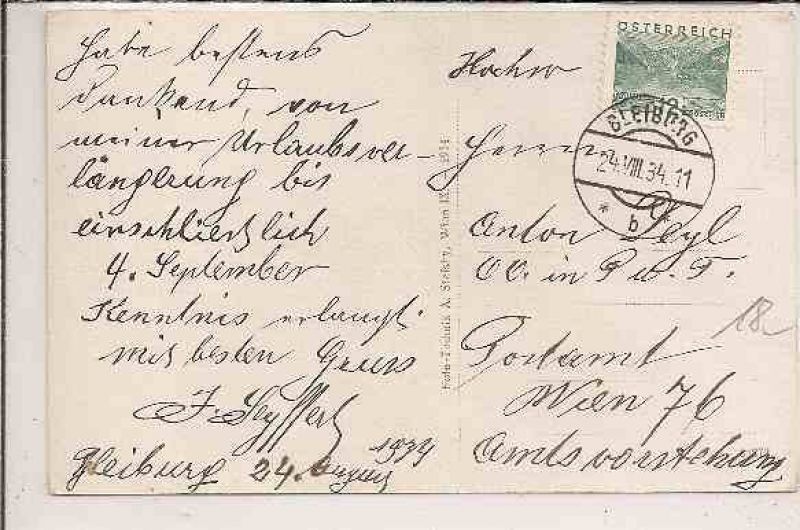 Habe bestens
dankend, von
meiner Urlaubsver-
längerung bis
einschliesslich
4. September
Kenntnis erlangt.
mit besten Gruss
J. Seyffert
Bleiburg 24. August 1934
ÖSTERREICH
BLEIBURG
24.VIII.34.11
* b
Herrn
Anton
in P u. T.
Postamt
Wien 76
Amtsvorstehung
18
Foto-Technik A. Stefsky, Wien